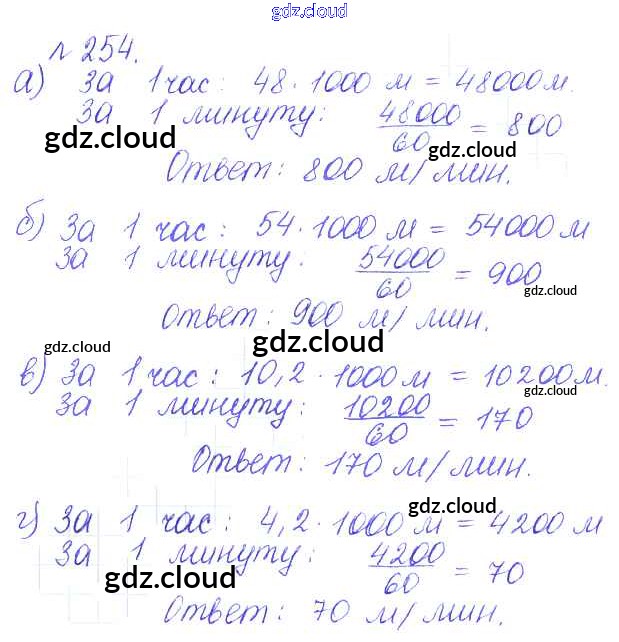 gdz.cloud
№ 254.
а) За 1 час: 48 · 1000 м = 48000 м.
За 1 минуту: 48000/60 = 800
gdz.cloud gdz.cloud
Ответ: 800 м/мин.
б) За 1 час: 54 · 1000 м = 54000 м
За 1 минуту: 54000/60 = 900
gdz.cloud
Ответ: 900 м/мин.
gdz.cloud gdz.cloud
в) За 1 час: 10,2 · 1000 м = 10200 м.
gdz.cloud
За 1 минуту: 10200/60 = 170
Ответ: 170 м/мин.
gdz.cloud
г) За 1 час: 4,2 · 1000 м = 4200 м
За 1 минуту: 4200/60 = 70
gdz.cloud gdz.cloud
Ответ: 70 м/мин.